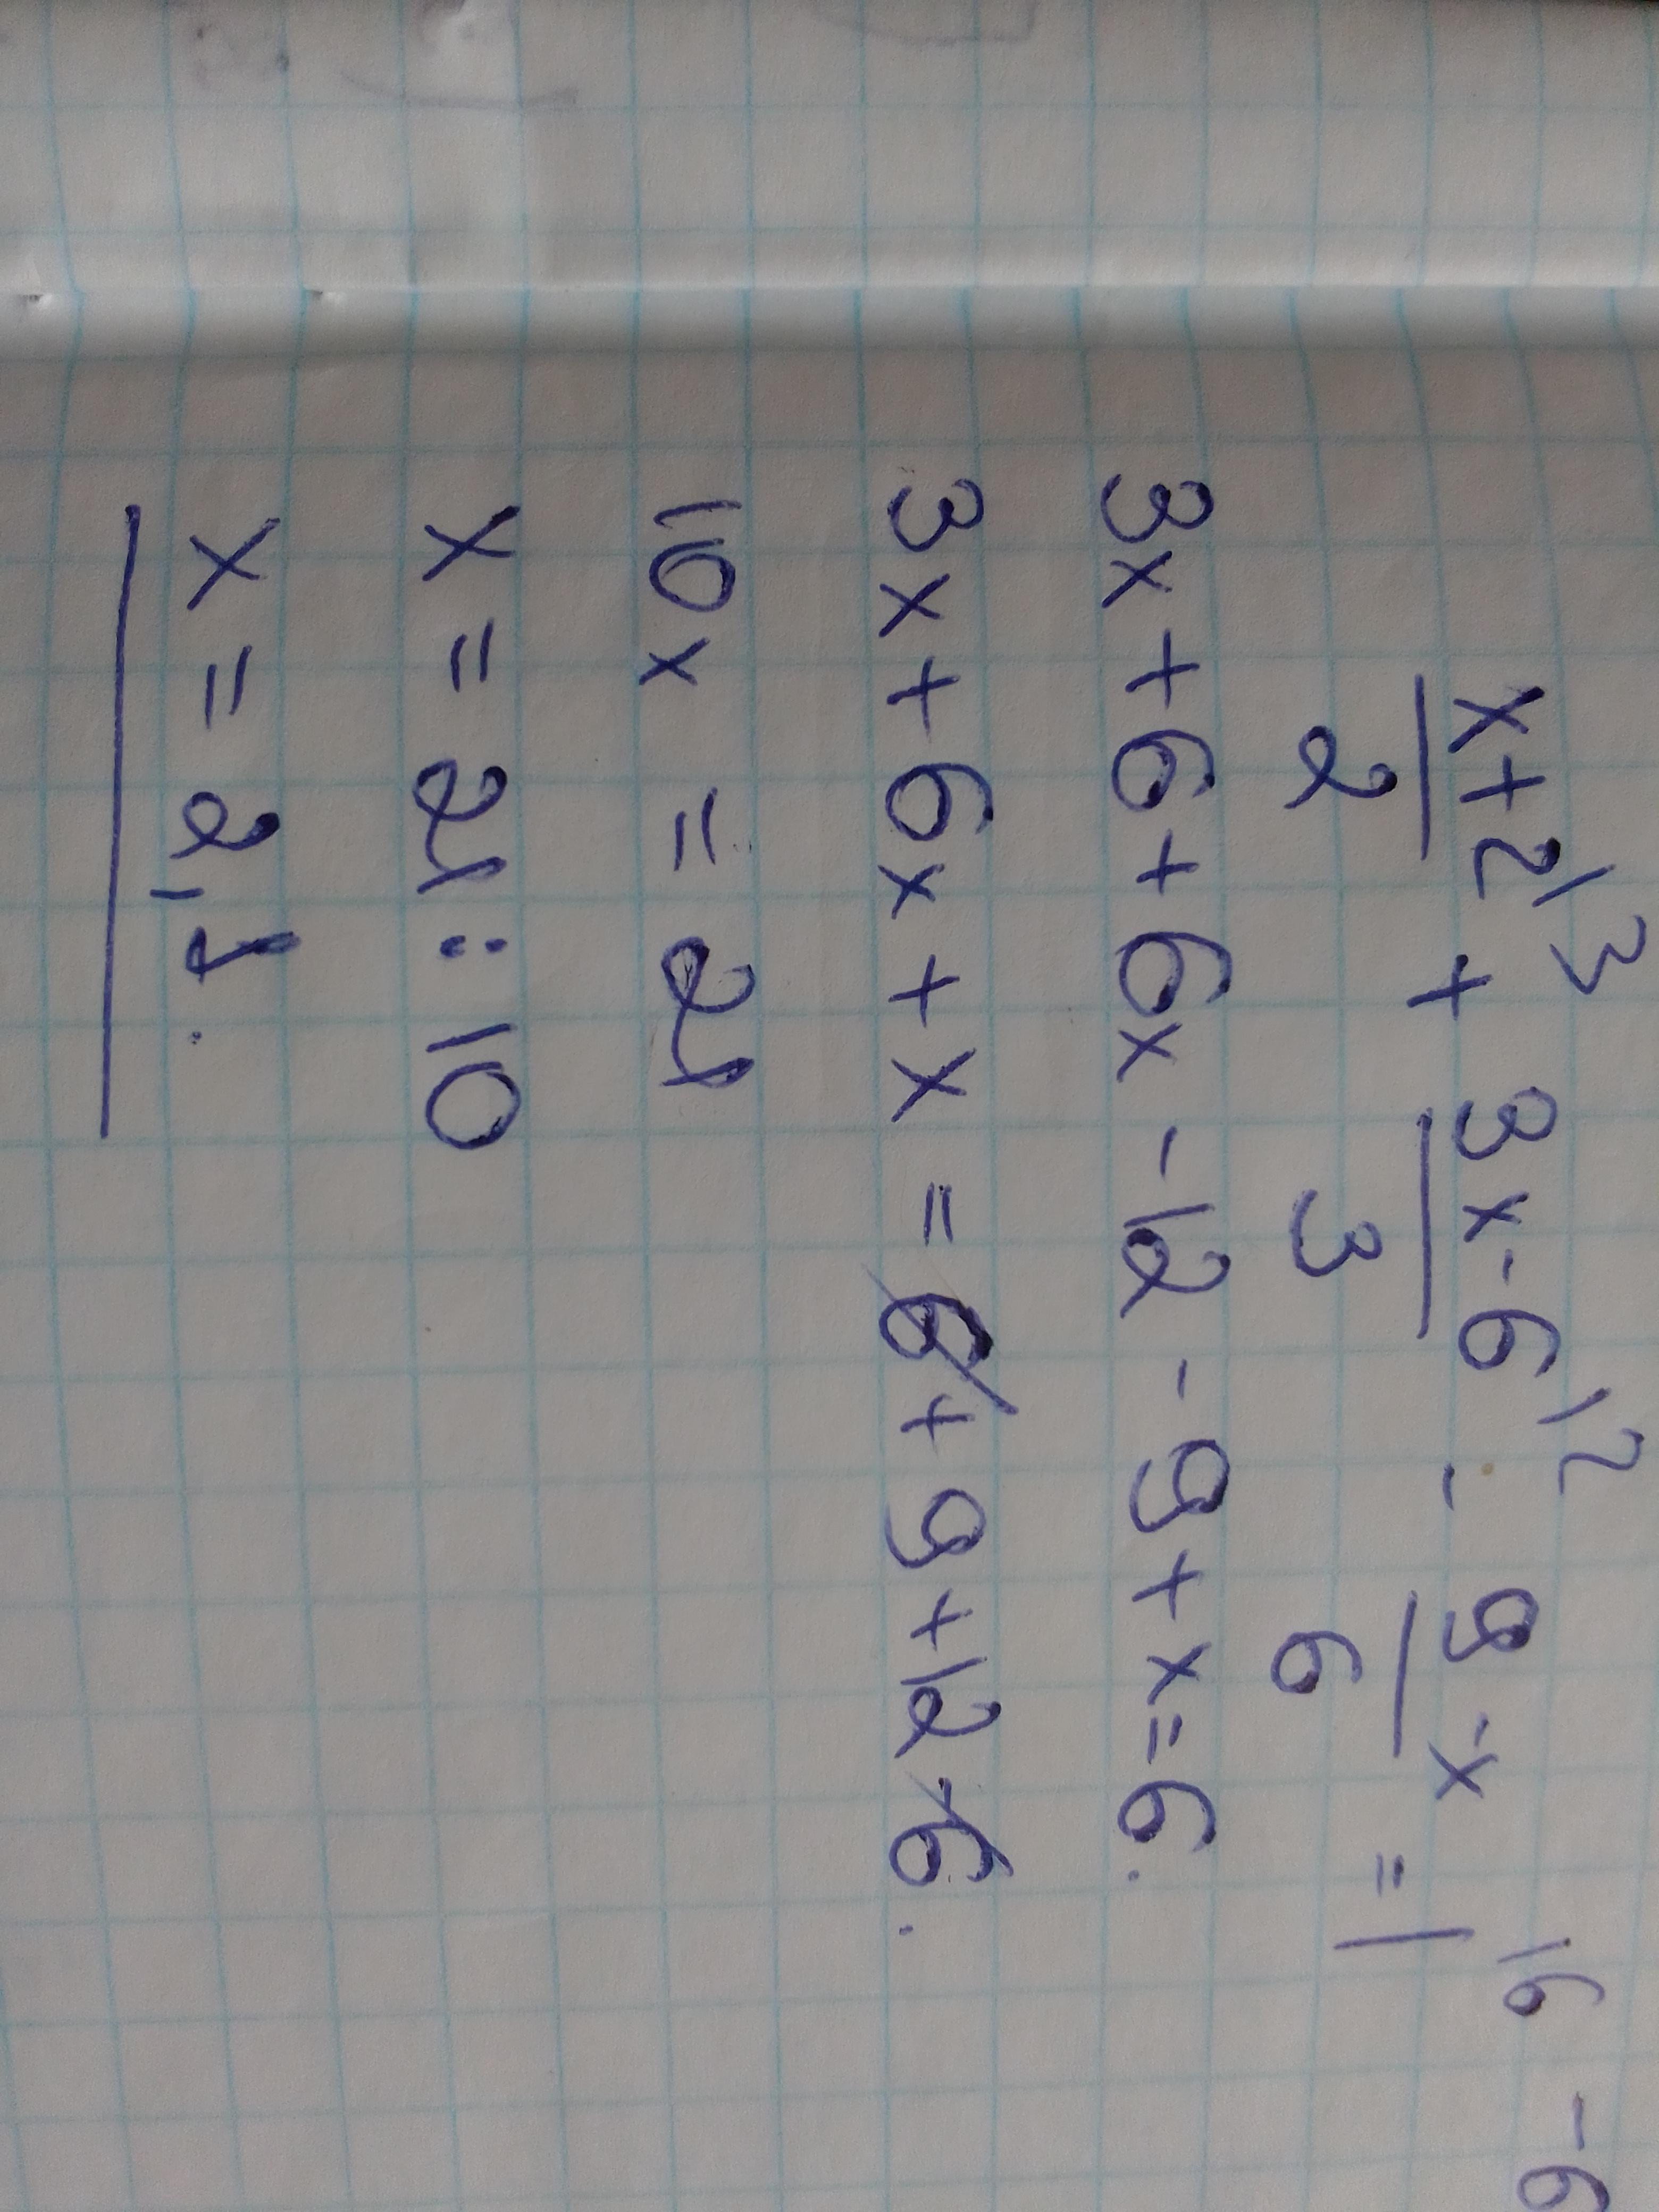 x+2\3 + 3x-6\2 - 9-x = 1\6 -6
2 3 6
3x+6+6x-12-9+x=6.
3x+6x+x=6+9+12-6.
10x = 21
x = 21:10
x = 2,1.